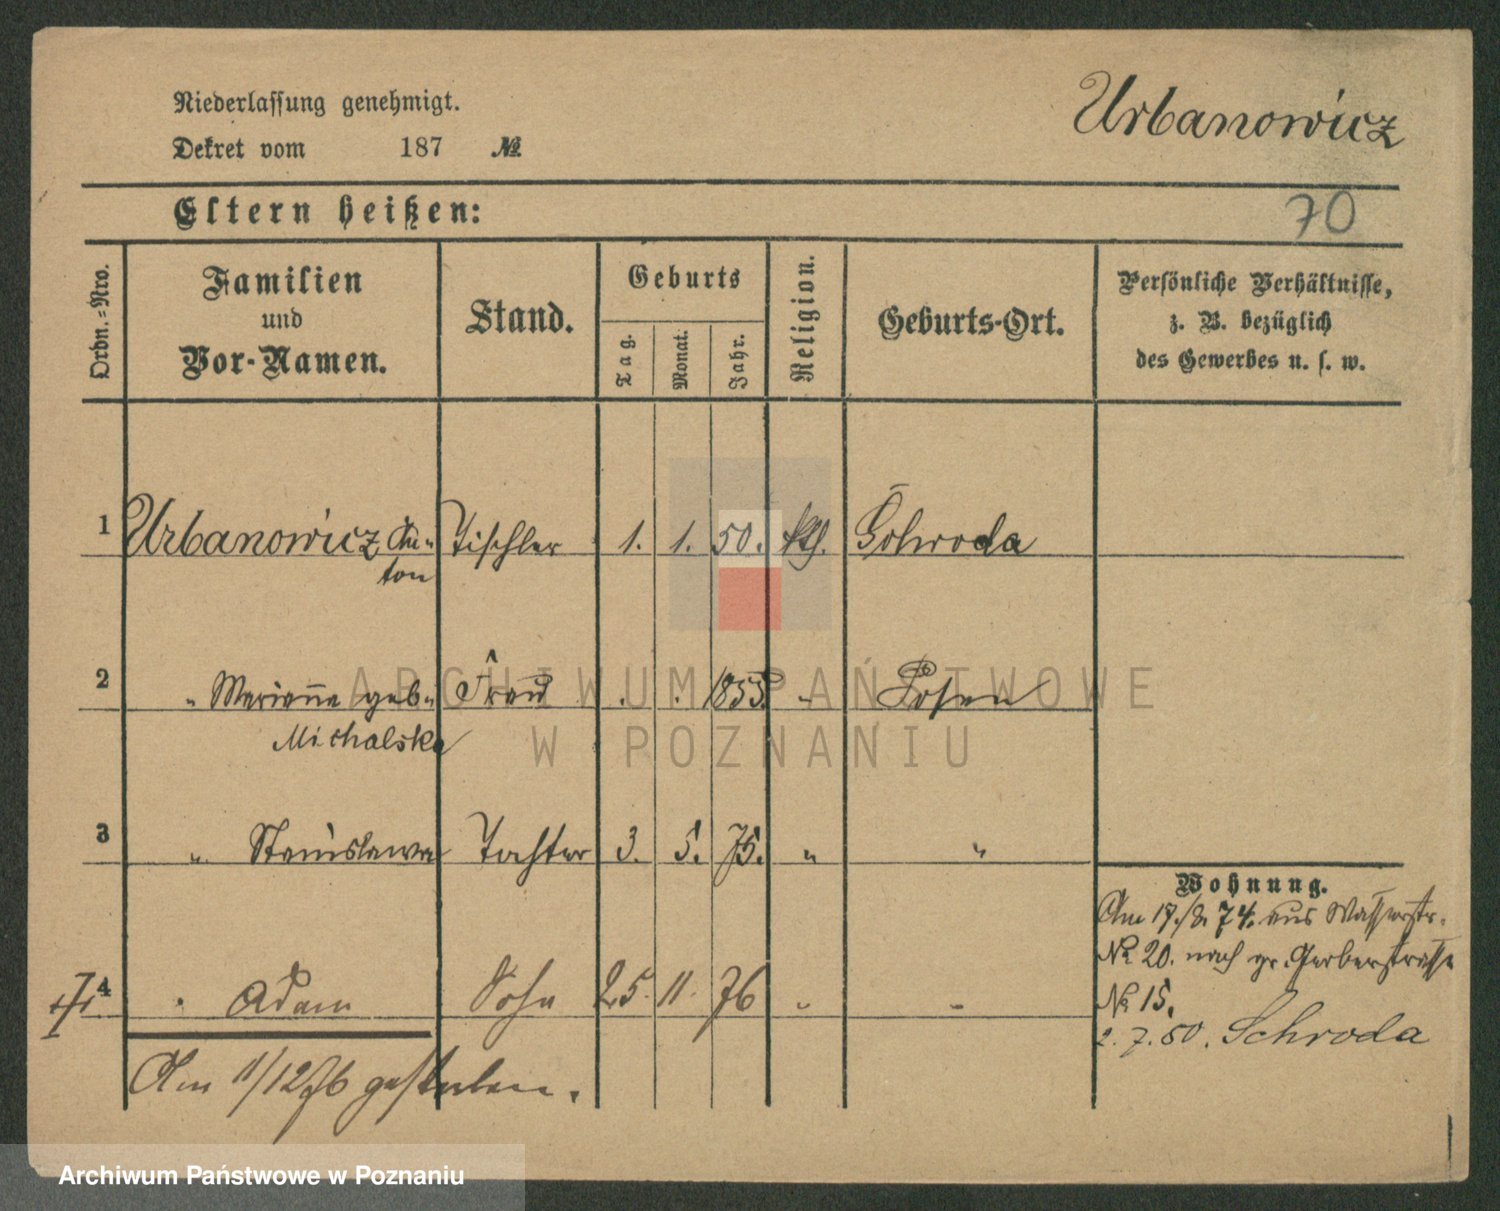 Niederlassung genehmigt.
Dekret vom 187 №
Urbanowicz
Eltern heißen:
70
Ordn.-Nro.
Familien
und
Vor-Namen.
Stand.
Geburts
Tag.
Monat.
Jahr.
Religion.
Geburts-Ort.
Persönliche Verhältnisse,
z. B. bezüglich
des Gewerbes u. s. w.
1 Urbanowicz An- Tischler 1. 1. 50. kth. Schroda
ton
2 " Marianne geb. Frau . . 1855. " Posen
Michalska
3 " Stanislawa Tochter 3. 5. 75. " "
Wohnung.
Am 17./8. 74. aus Wasserstr.
№ 20. nach gr. Gerberstrasse
4 " Adam Sohn 25. 11. 76 " "
№ 15.
2. 7. 50. Schroda
Am 11/12 76 gestorben.
ARCHIWUM PAŃSTWOWE
W POZNANIU
Archiwum Państwowe w Poznaniu